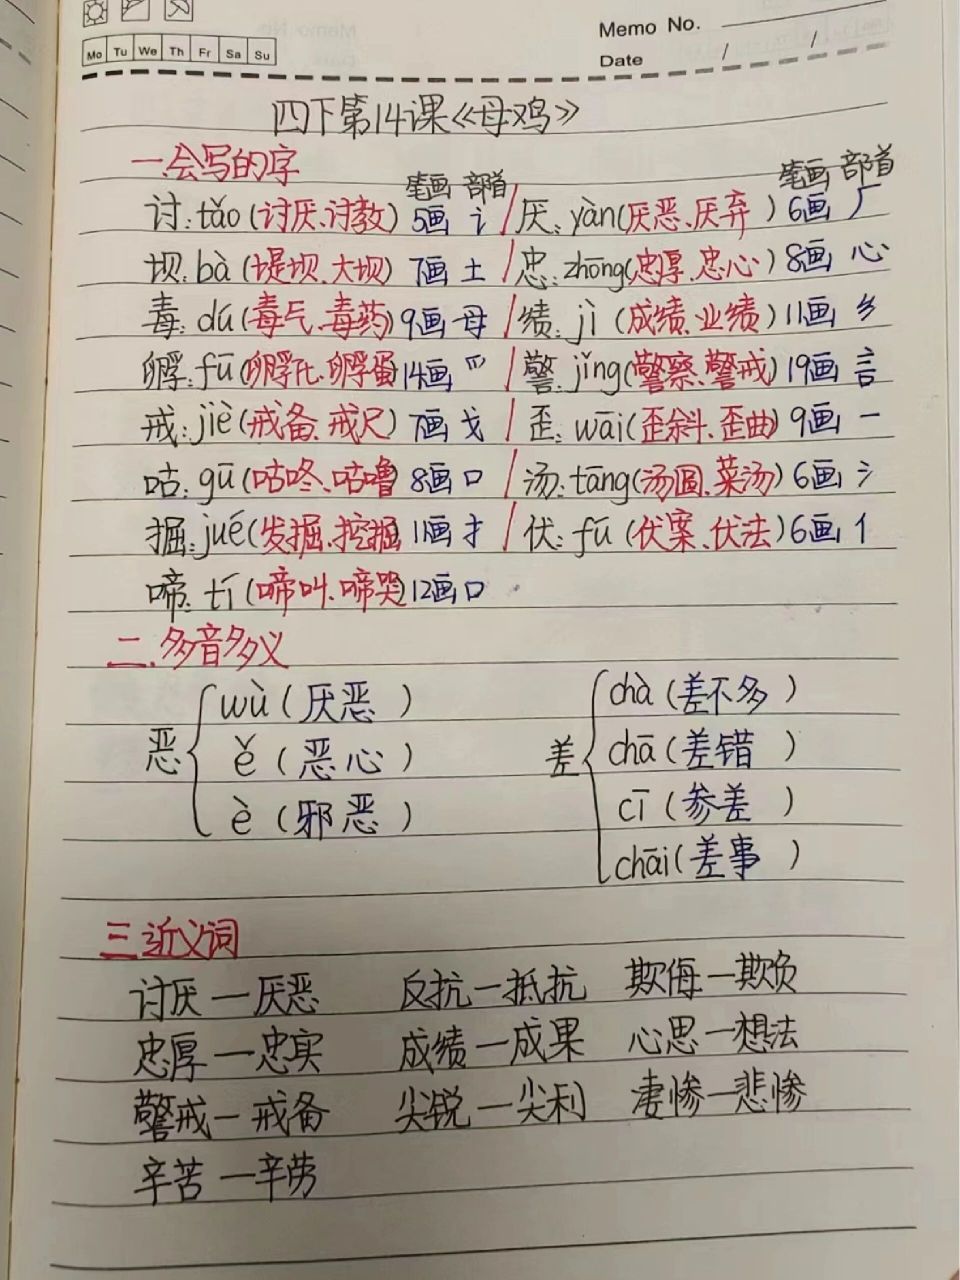 Memo No.
Mo Tu We Th Fr Sa Su
Date / /
四下第14课《母鸡》
一.会写的字
笔画 部首 笔画 部首
讨:tǎo(讨厌、讨教)5画 讠/厌:yàn(厌恶、厌弃)6画 厂
坝:bà(堤坝、大坝)7画 土/忠:zhōng(忠厚、忠心)8画 心
毒:dú(毒气、毒药)9画 母/绩:jì(成绩、业绩)11画 纟
孵:fū(孵化、孵蛋)14画 爫/警:jǐng(警察、警戒)19画 言
戒:jiè(戒备、戒尺)7画 戈/歪:wāi(歪斜、歪曲)9画 一
咕:gū(咕咚、咕噜)8画 口/汤:tāng(汤圆、菜汤)6画 氵
掘:jué(发掘、挖掘)11画 扌/伏:fú(伏案、伏法)6画 亻
啼:tí(啼叫、啼哭)12画 口
二.多音多义
恶 wù(厌恶) ě(恶心) è(邪恶)
差 chà(差不多) chā(差错) cī(参差) chāi(差事)
三.近义词
讨厌—厌恶 反抗—抵抗 欺侮—欺负
忠厚—忠实 成绩—成果 心思—想法
警戒—戒备 尖锐—尖利 凄惨—悲惨
辛苦—辛劳